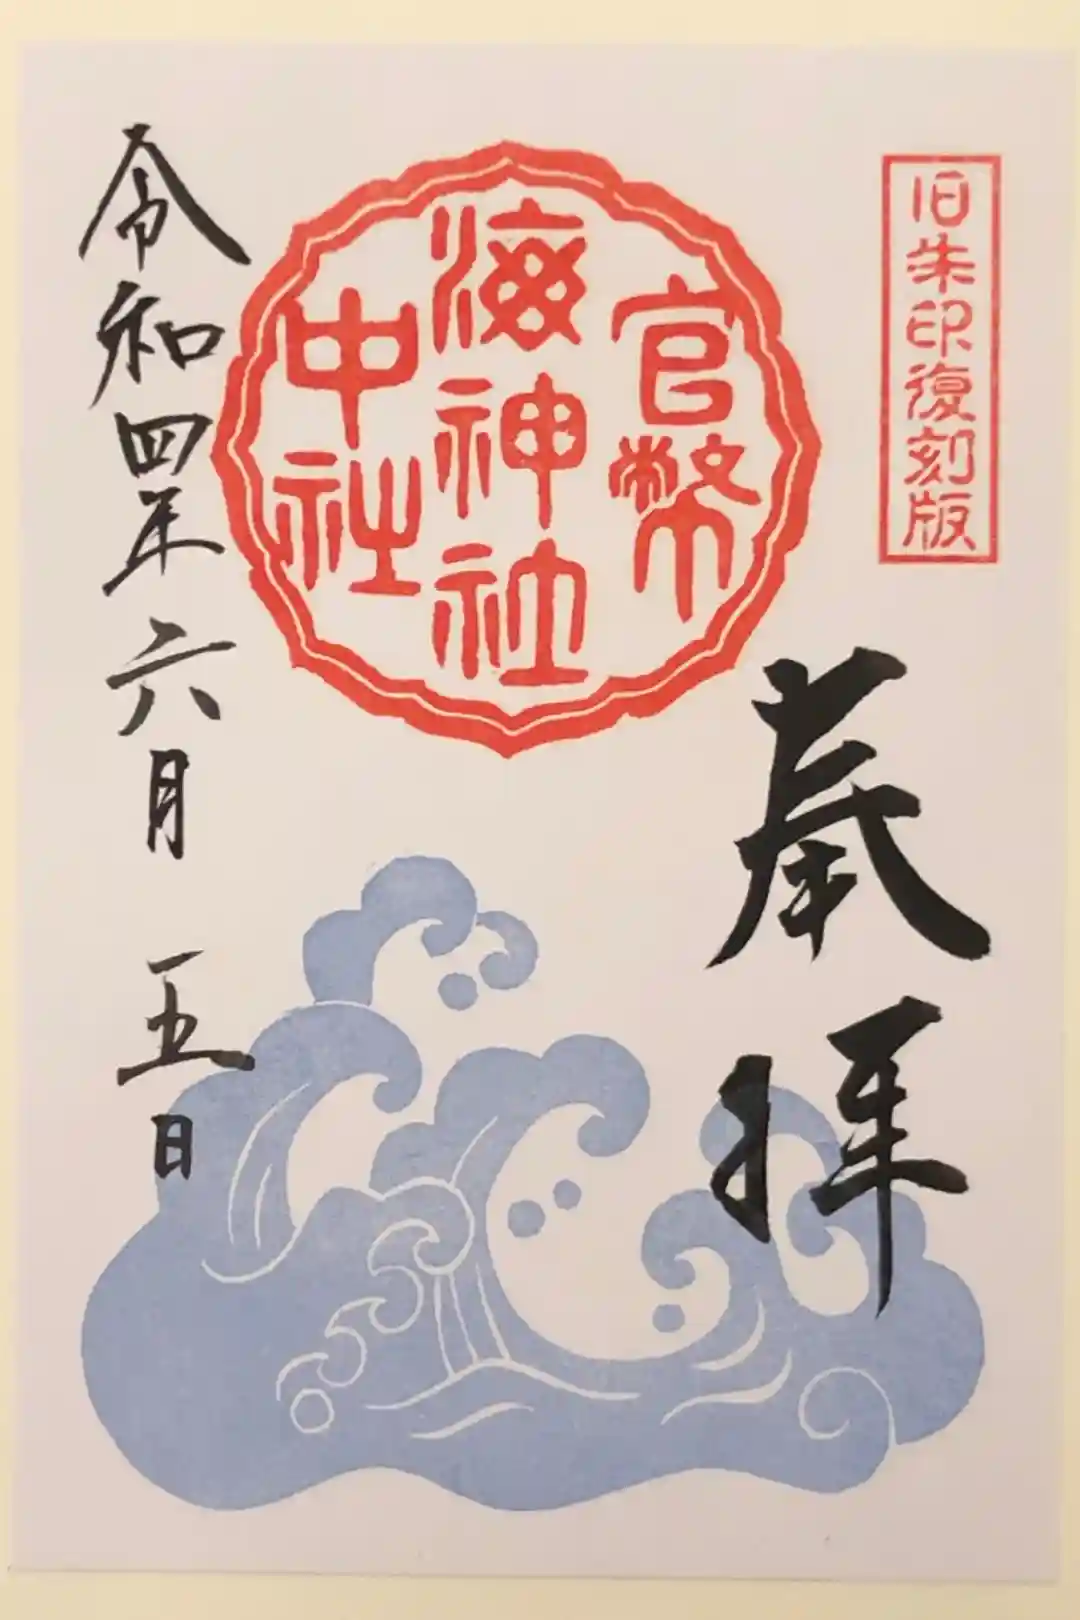 旧朱印復刻版
奉拝
官幣
海神社
中社
令和四年六月五日